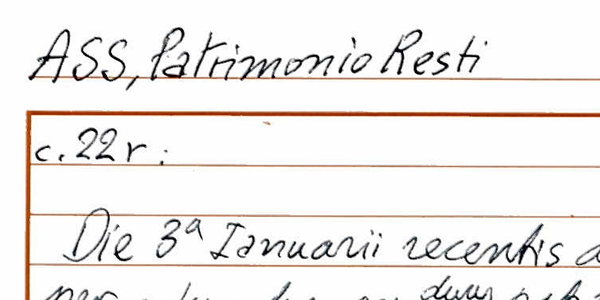 ASS, Patrimonio Resti
c. 22 r:
Die 3ª Ianuarii recentis